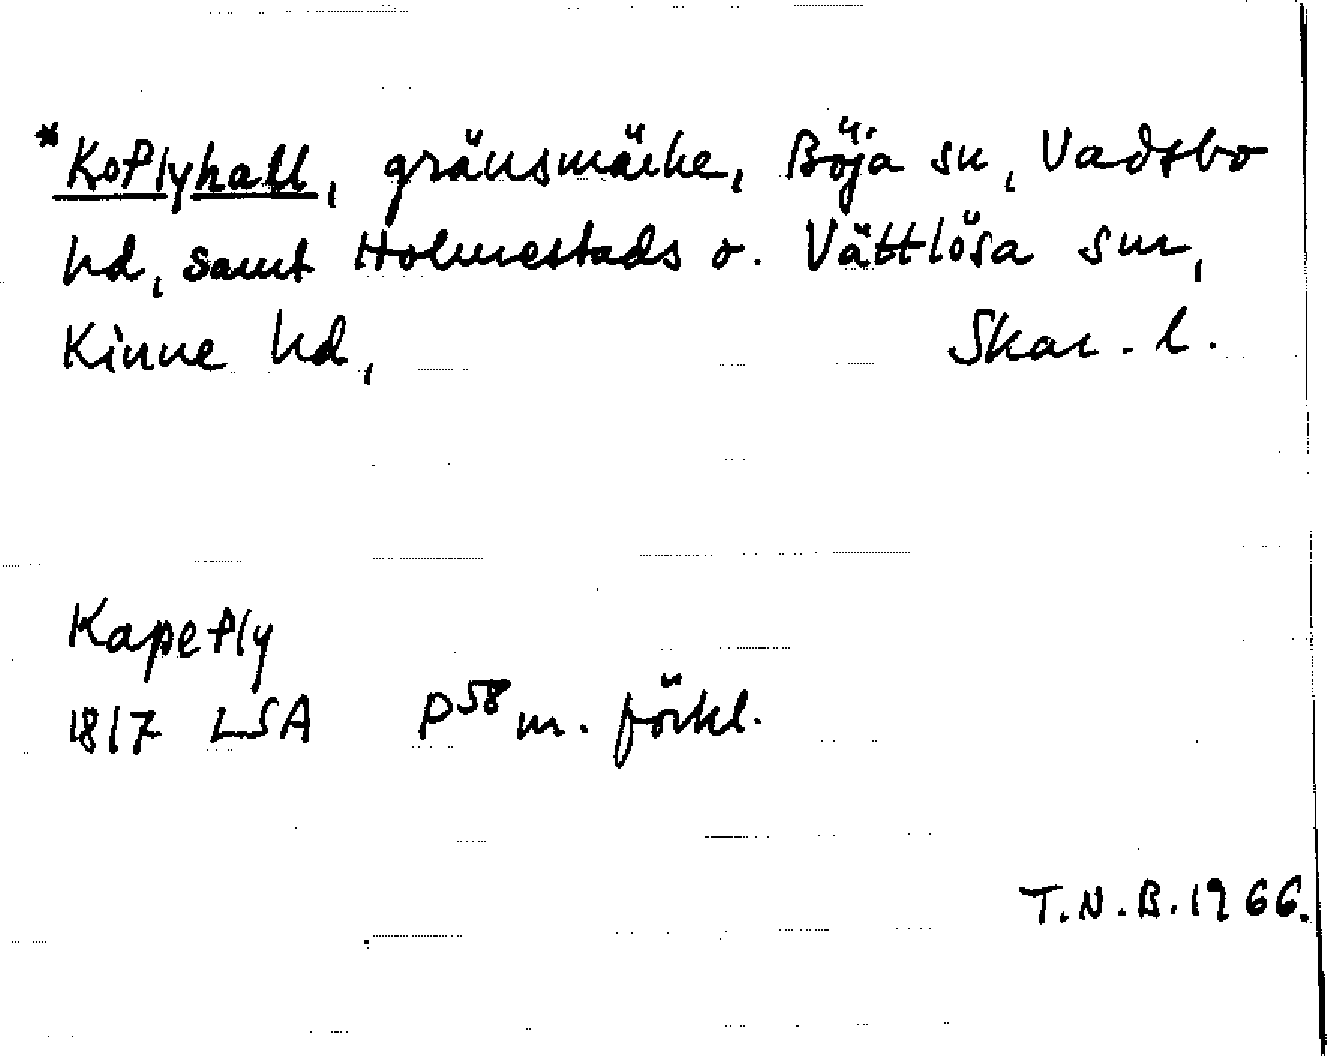 *Koflyhall, gränsmärke, Böja sn, Vadsbo
hd, samt Holmestads o. Vättlösa snr,
Kinne hd, Skar. l.
Kapefly
1817 LSA P58 m. förkl.
T.N.B. 1966.